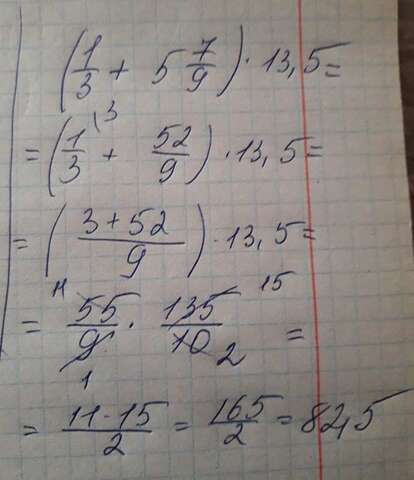 (1/3 + 5 7/9) · 13,5 =
\3
= (1/3 + 52/9) · 13,5 =
= (3+52/9) · 13,5 =
11 15
= 55/9 · 135/10 =
1 2
= 11·15/2 = 165/2 = 82,5